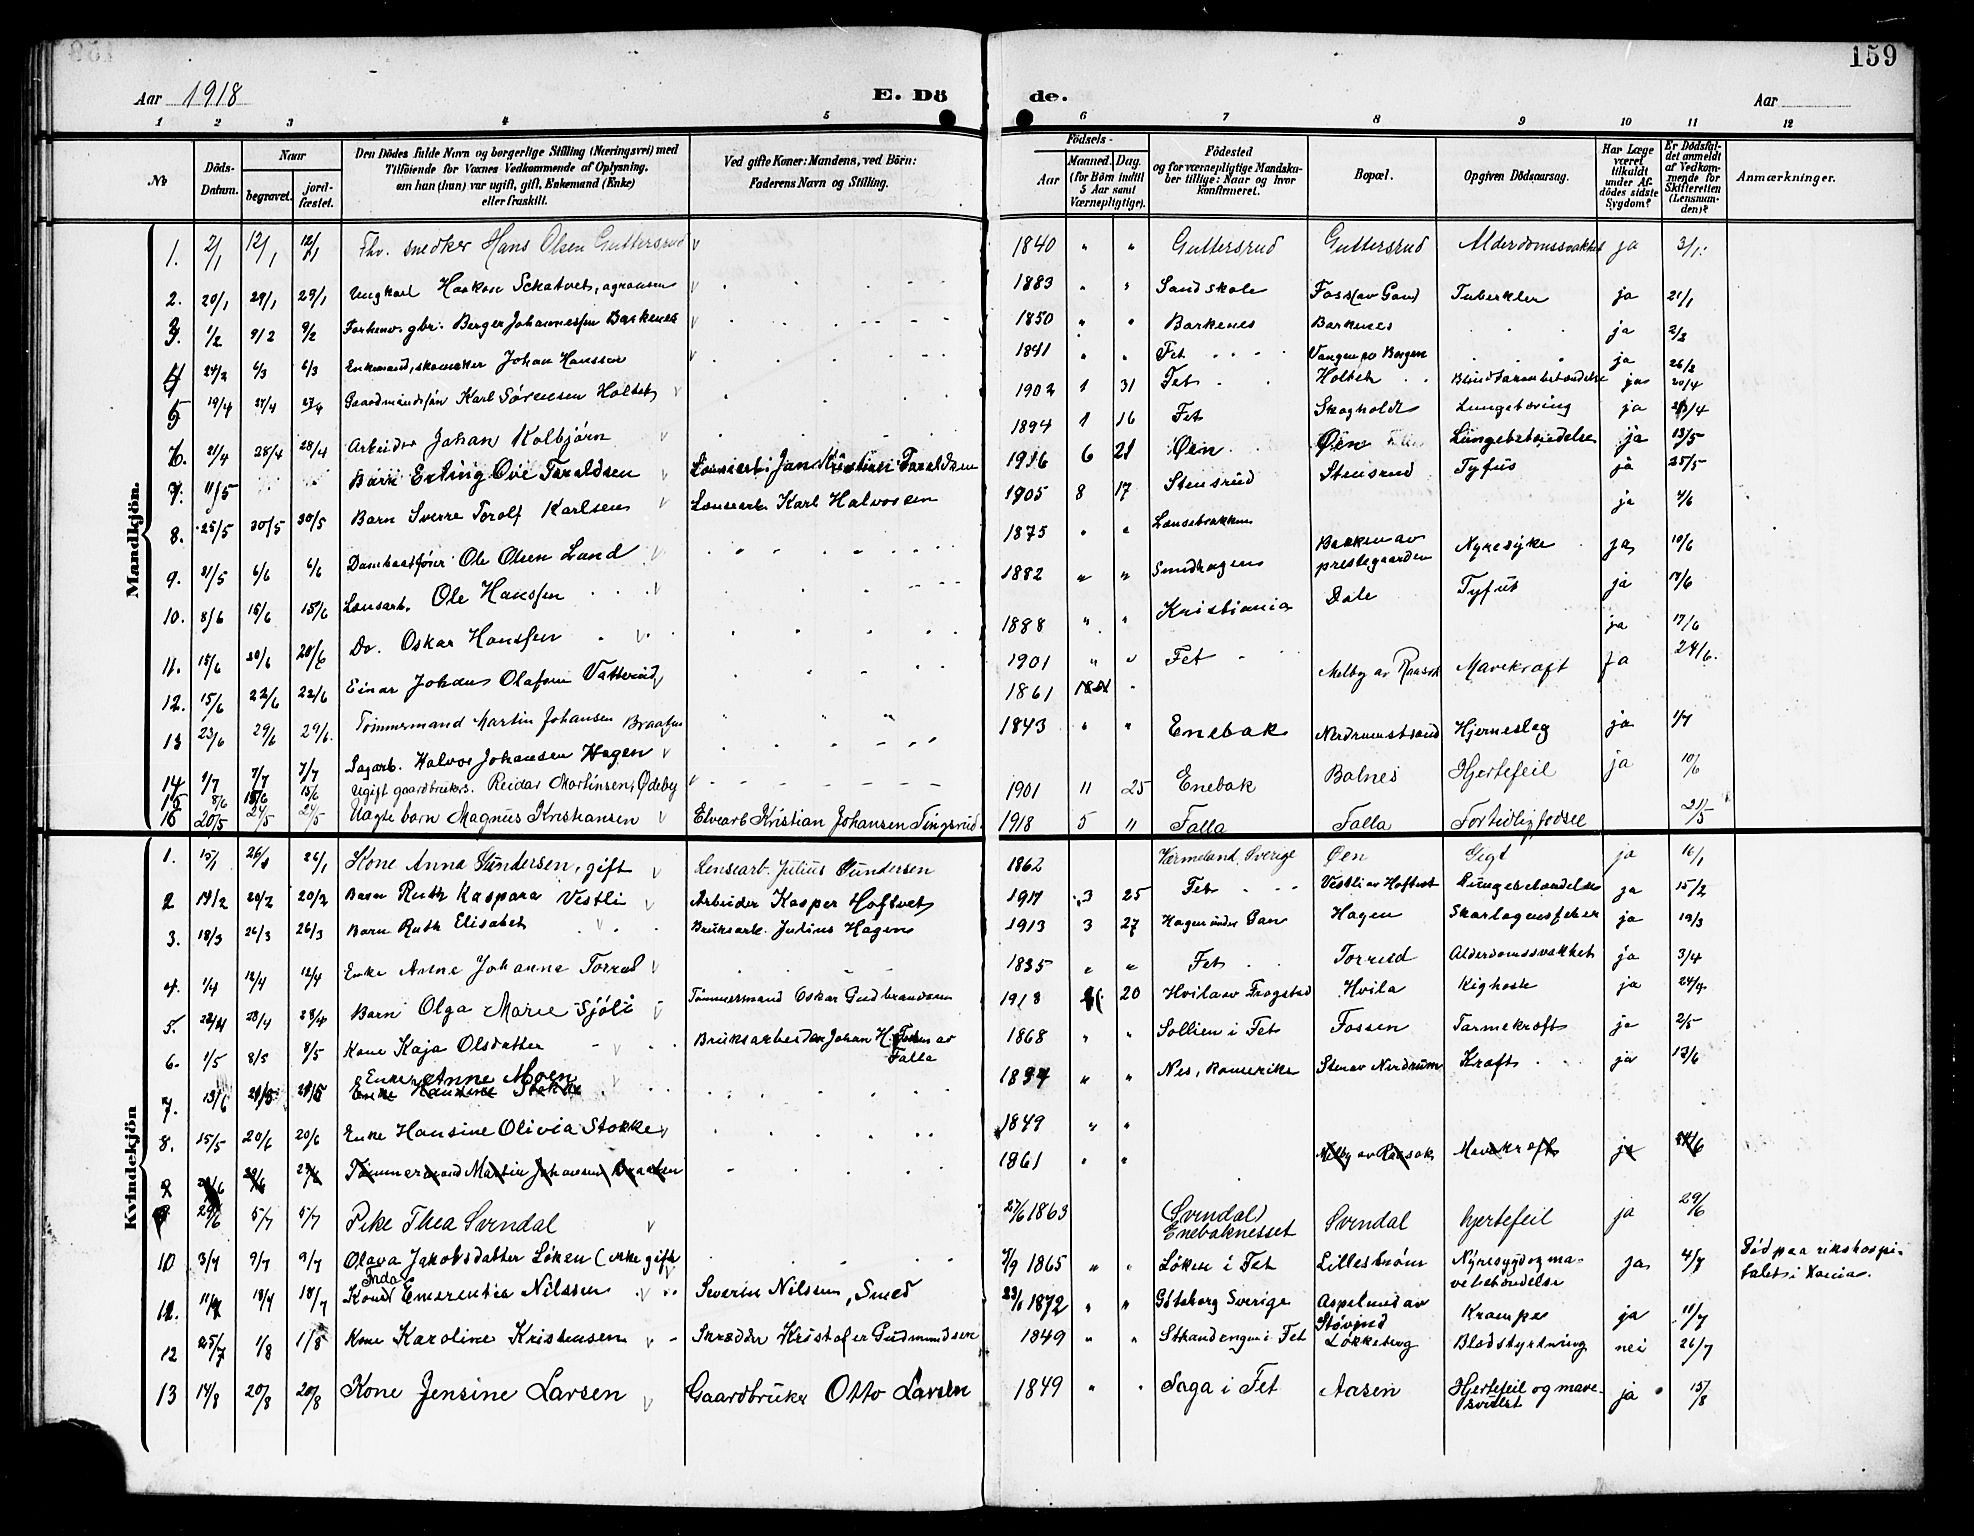 159
Aar 1918 E. Dö de. Aar
1 2 3 4 5 6 7 8 9 10 11 12
No
Döds-Datum.
Naar
begravet.
jord-fæstet.
Den Dödes fulde Navn og borgerlige Stilling (Næringsvei) med
Tilföiende for Voxnes Vedkommende af Oplysning,
om han (hun) var ugift, gift, Enkemand (Enke)
eller fraskilt.
Ved gifte Koner: Mandens, ved Börn:
Faderens Navn og Stilling.
Födsels-
Aar
Maaned. Dag.
(for Börn indtil
5 Aar samt
Værnepligtige).
Födested
og for værnepligtige Mandska-
ber tillige: Naar og hvor
konfirmeret.
Bopæl.
Opgiven Dödsaarsag.
Har Læge
været
tilkaldt
under Af-
dödes sidste
Sygdom?
Er Dödsfal-
det anmeldt
af Vedkom-
mende for
Skifteretten
(Lensman-
den)?
Anmærkninger.
Mandkjön.
1. 2/1 12/1 12/1 Fhv. snedker Hans Olsen Guttersrud 1840 " " Guttersrud Guttersrud Alderdomssvakhet ja 3/1.
2. 20/1 29/1 29/1 Ungkarl Haakon Schatvet, agronom 1883 " " Sandskole Foss (av Gan) Tuberkler ja 21/1
3. 1/2 9/2 9/2 Forhenv. gbr. Berger Johannessen Barkenes 1850 " " Barkenes Barkenes ja 2/2
4 24/2 6/3 6/3 Enkemand, skomaker Johan Hanssen 1841 " " Fet Vangen av Borgen ja 26/2
5 19/4 27/4 27/4 Gaardmandssøn Karl Sørensen Holtet 1902 1 31 Fet Holtet Blindtarmbetændelse ja 20/4
6. 21/4 28/4 28/4 Arbeider Johan Kolbjørn 1894 1 16 Fet Skogholdt Lungetæring ja 23/4
7. 11/5 Barn Erling Ove Taraldsen Lænsearb. Jan Kristian Taraldsen 1916 6 21 Øen Øen Lungebetændelse ja 13/5
8. 25/5 30/5 30/5 Barn Sverre Torolf Karlsen Lænsearb. Karl Halvorsen 1905 8 17 Stensrud Stensrud Tyfus ja 25/5
9. 31/5 6/6 6/6 Dambaatfører Ole Olsen Lund 1875 " " Lænsebrakken ja 4/6
10. 8/6 15/6 15/6 Lænsarb. Ole Hanssen 1882 " " Smedhagen Bakken av prestegaarden Nyresyke ja 10/6
11. 15/6 20/6 20/6 Do. Oskar Hanssen 1888 " " Kristiania Dale Tyfus ja 18/6
12. 15/6 22/6 22/6 Einar Johans Olafsen Vatterud 1901 " " Fet ja 17/6
13 23/6 29/6 29/6. Tømmermand Martin Johansen Braaten 1861 " Melby av Raasok Mavekræft ja 24/6.
14 1/7 7/7 7/7 Sagarb. Halvor Johansen Hagen 1843 " " Enebak Nerdrumstrand Hjerneslag ja 1/7
15 8/6 15/6 15/6 Ugift gaardbrukers. Reidar Martinsen, Ødeby 1901 11 25 Enebak Balnes Hjertefeil ja 10/6
16 20/5 24/5 24/5 Uægte barn Magnus Kristiansen Elvearb Kristian Johansen Tingsrud 1918 5 " Falla Falla Fortidlig fødsel 21/5
Kvindekjön
1. 15/1 26/1 26/1 Kone Anna Gundersen, gift Lensearb. Julius Gundersen 1862 Værmeland, Sverige Øen Gigt ja 16/1
2 14/2 20/2 20/2 Barn Ruth Kaspara Vestli Arbeider Kasper Hoftvet 1917 3 25 Fet Vestli av Hoftvet Lungebetændelse ja 15/2
3. 18/3 26/3 26/3 Barn Ruth Elisabet Bruksarb. Julius Hagen 1913 3 27 Hagen under Gan Hagen Skarlagensfeber ja 19/3
4. 1/4 12/4 12/4 Enke Anne Johanne Torrud 1835 " " Fet Torrud Alderdomssvakhet ja 3/4
5. 22/4 28/4 28/4 Barn Olga Marie Sjøli Tømmermand Oskar Gudbrandsen 1918 20 Hvila av Frogstad Hvila Kighoste ja 24/4
6. 1/5 8/5 8/5 Kone Kaja Olsdatter Bruksarbeider Johan H. Fossen av Falla 1868 " " Sollien i Fet Fossen Tarmekræft ja 2/5
7. 13/6 Enke Anne Moen Enke Hansine Stokke 1834 " " Nes, Romerike Sten av Nerdrum Kræft ja 13/6
8. 15/5 20/6 20/6 Enke Hansine Olivia Stokke 1849 " "
9 23/6 29/6 29/6 Tømmermand Martin Johansen Braaten 1861 " " Melby av Raasok Mavekræft ja 24/6
9 29/6 5/7 5/7 Pike Thea Svendal 27/6 1863 (Svendal) Enebaknesset Svendal hjertefeil ja 29/6
10 3/7 9/7 9/7 Olava Jakobsdatter Løken (ikke gift 7/9 1865 " " Løken i Fet Lillestrøm Nyresygd og ma-vebetændelse ja 4/7 Død paa rikshospi-talet i Xania.
11. 11/7 18/7 18/7 Kone Inda Emerentia Nilssen Severin Nilssen, Smed 23/1 1872 " " Gøteborg Sverige Aspelund av Støvind Krampe ja 11/7
12 25/7 1/8 1/8 Kone Karoline Kristensen Skrædder Kristofer Gudmundsen 1849 " " Strandengen i Fet Løkkeberg Blodstyrtning nei 26/7
13 14/8 20/8 20/8 Kone Jensine Larsen Gaardbruker Otto Larsen 1849 " " Saga i Fet Aasen Hjertefeil og mave-svulst ja 15/8